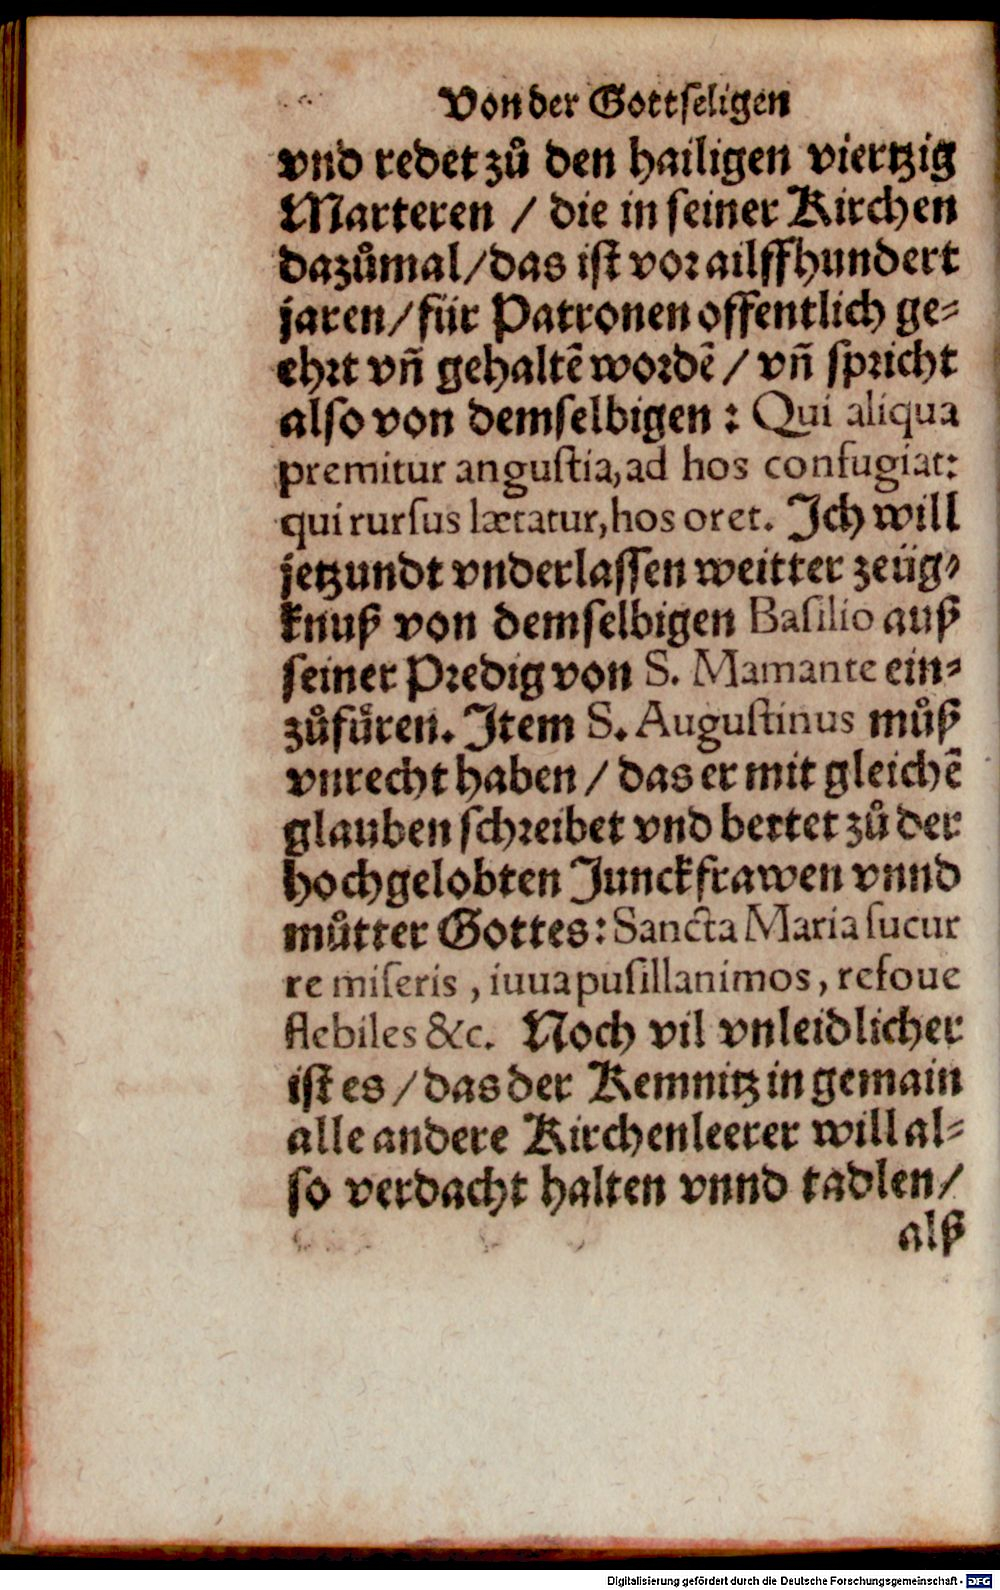 Von der Gottseligen
vnd redet zů den hailigen viertzig
Marteren / die in seiner Kirchen
dazůmal / das ist vor ailffhundert
jaren / für Patronen offentlich ge⸗
ehrt vñ gehaltẽ wordẽ / vñ spricht
also von demselbigen : Qui aliqua
premitur angustia, ad hos confugiat:
qui rursus lætatur, hos oret. Ich will
jetzundt vnderlassen weitter zeüg⸗
knuß von demselbigen Basilio auß
seiner Predig von S. Mamante ein⸗
zůfüren. Item S. Augustinus můß
vnrecht haben / das er mit gleichẽ
glauben schreibet vnd bettet zů der
hochgelobten Junckfrawen vnnd
můtter Gottes: Sancta Maria sucur
re miseris, iuua pusillanimos, refoue
flebiles &c. Noch vil vnleidlicher
ist es / das der Kemnitz in gemain
alle andere Kirchenleerer will al⸗
so verdacht halten vnnd tadlen /
alß
Digitalisierung gefördert durch die Deutsche Forschungsgemeinschaft - DFG